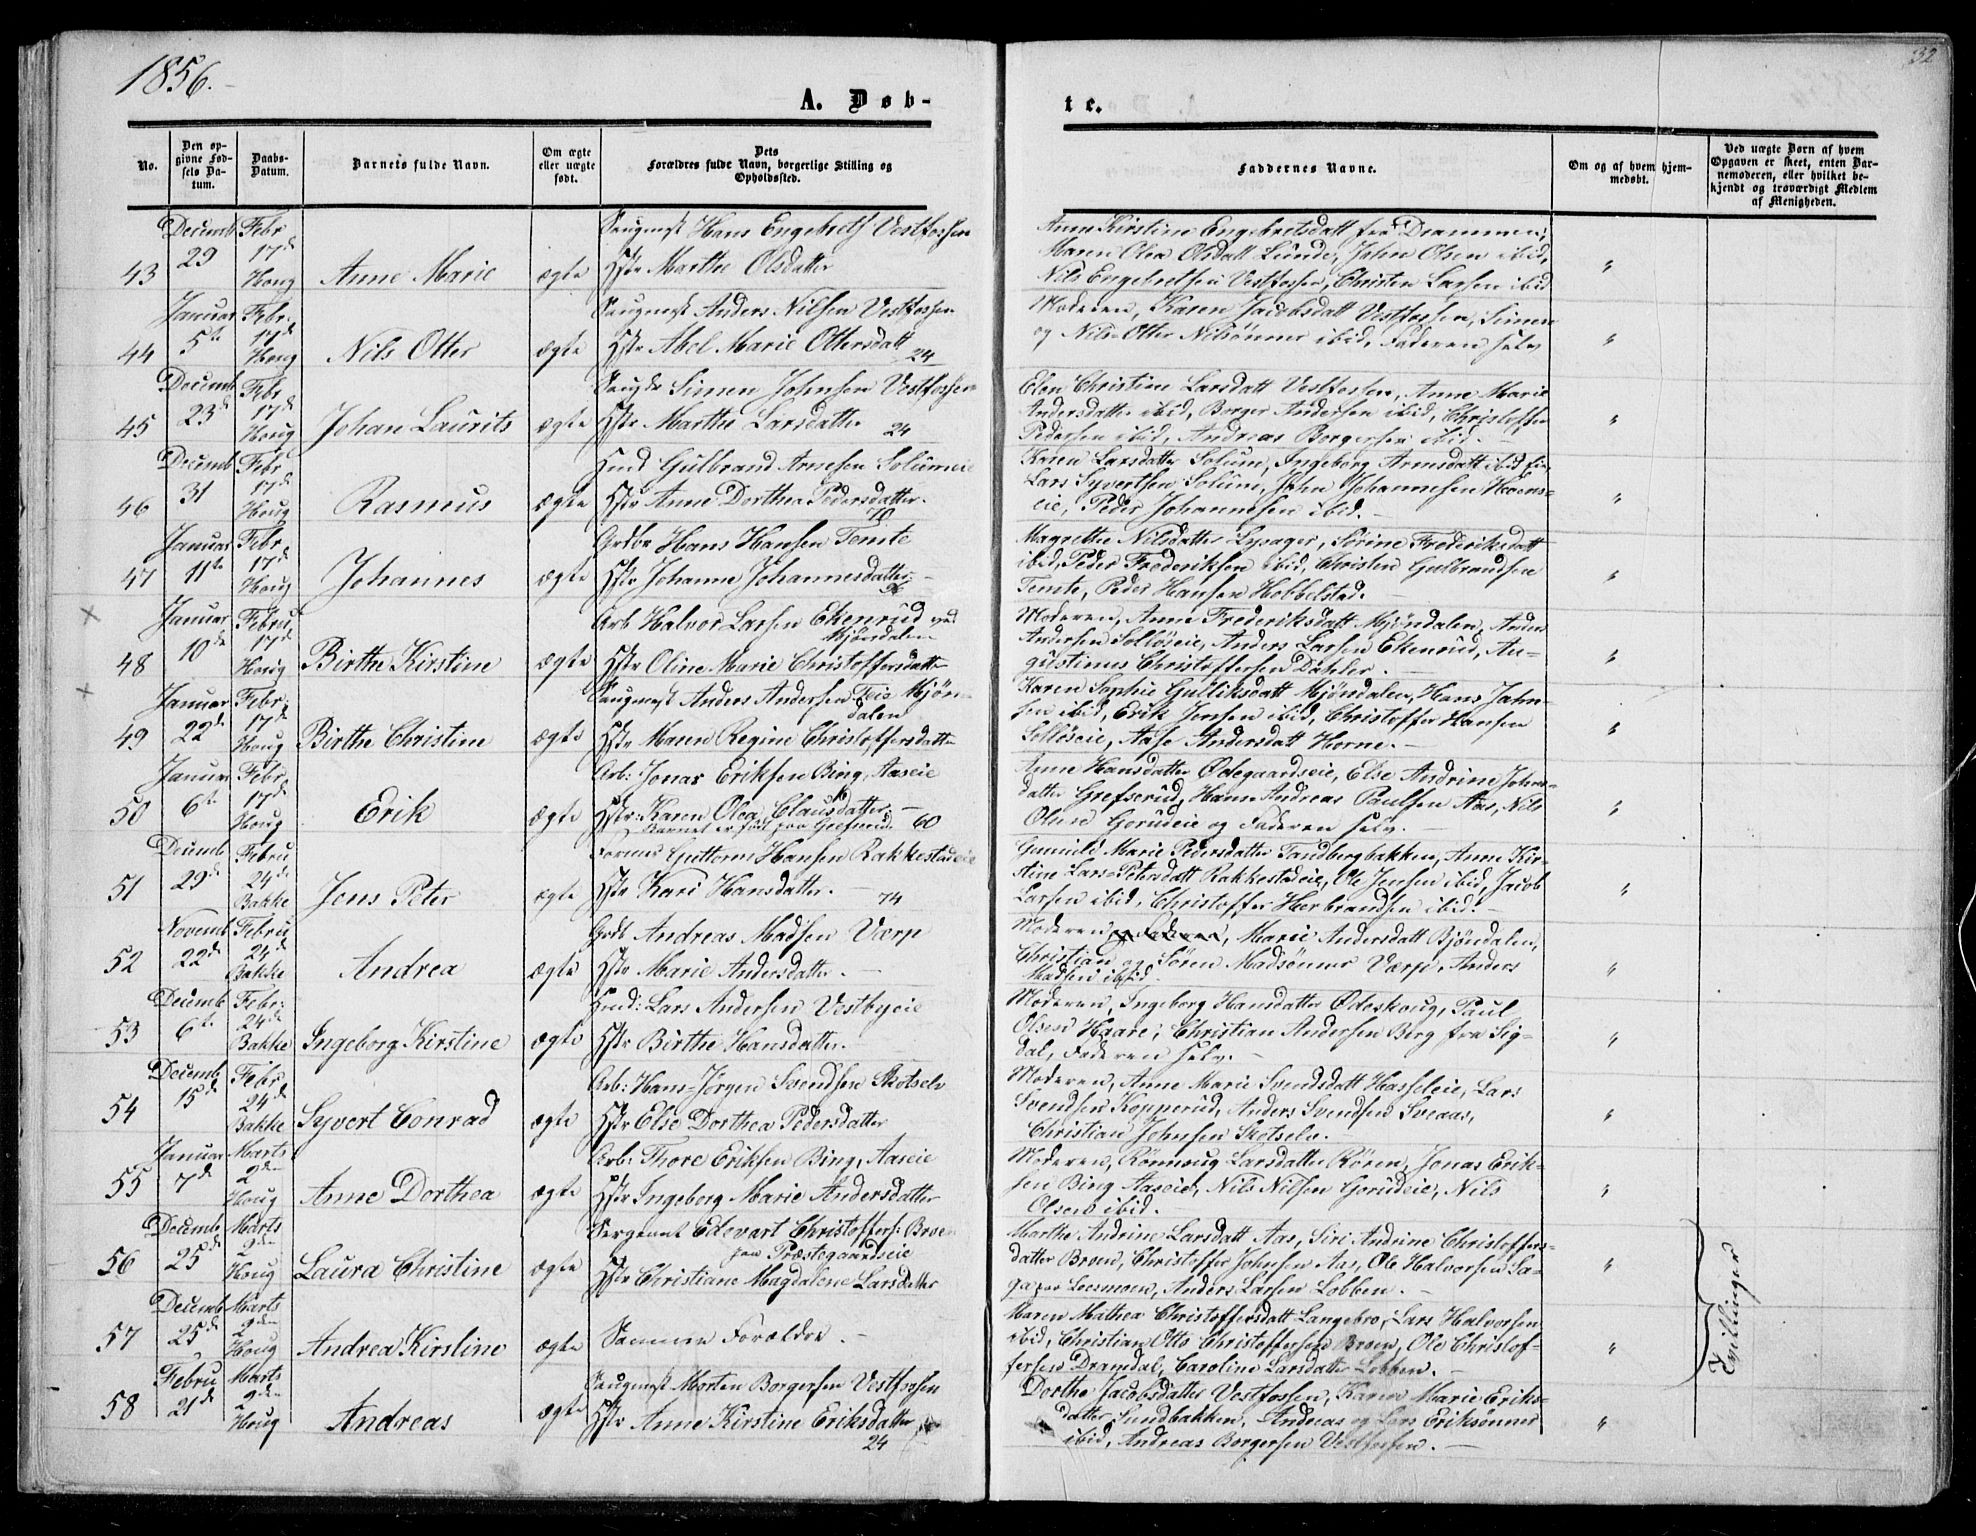 1856.
32
A. Døb-
te.
No.
Den op-
givne Fød-
sels Da-
tum.
Daabs-
Datum.
Barnets fulde Navn.
Om ægte
eller uægte
født.
Dets
Forældres fulde Navn, borgerlige Stilling og
Opholdssted.
Faddernes Navne.
Om og af hvem hjem-
medøbt.
Ved uægte Børn af hvem
Opgaven er skeet, enten Bar-
nemoderen, eller hvilket be-
kjendt og troværdigt Medlem
af Menigheden.
43 Decemb 29 Febr 17de Houg Anne Marie ægte
Saugmest Hans Engebreths Vestfossen
Hstr Marthe Olsdatter
Anne Kirstine Engebretsdatt fra Drammen,
Maren Olea Olsdatt Lunde, John Olsen ibid,
Nils Engebretsen Vestfossen, Christen Larsen ibid
44 Januar 5te Febr. 17de Houg Nils Otter ægte
Saugmest Anders Nilsen Vestfossen
Hstr Abel Marie Ottersdatt 24
Moderen, Karen Jacobsdatt Vestfossen, Simen
og Nils Otter Nilsønner ibid, Faderen selv
45 Decemb 23de Febr 17de Houg Johan Laurits ægte
Saugdr Simen Johnsen Vestfossen
Hstr Marthe Larsdatter 24
Elen Christine Larsdatt Vestfossen, Anne Marie
Andersdatter ibid, Borger Andersen ibid, Christoffer
Pedersen ibid, Andreas Borgersen ibid.
46 Decemb 31 Febr 17de Houg Rasmus ægte
Hmd Gulbrand Arnesen Solumeie
Hstr Anne Dorthea Pedersdatter. 70
Karen Larsdatter Solum, Ingeborg Arnesdatt ibid
Lars Syvertsen Solum, John Johannesen Hoens-
eie, Peder Johannesen ibid.
47 Januar 11te Febr. 17de Houg Johannes ægte
Grdbr Hans Hansen Temte
Hstr Johanne Johannesdatter
Magrethe Nilsdatter Lysager, Sørine Frederiksdatt
ibid, Peder Frederiksen ibid, Christen Gulbrandsen
Temte, Peder Hansen Hobbelstad.
48 Januar 10de Febru 17de Houg Birthe Kirstine ægte
Arb Halvor Larsen Ekenrud ved
Mjøndalen
Hstr Oline Marie Christoffersdatter
Moderen, Anne Frederiksdatt Mjøndalen, Anders
Andersen Solløseie, Anders Larsen Ekenrud, Au-
gustinus Christoffersen Dahler.
49 Januar 22de Febr. 17de Houg Birthe Christine ægte
Saugmest Anders Andersen Teis Mjøn-
dalen
Hstr Maren Regine Christoffersdatter
Karen Sophie Gulliksdatt Mjøndalen, Hans Jahn-
sen ibid, Erik Jensen ibid, Christoffer Hansen
Solløseie, Aase Andersdatt Horne.
50 Januar 6te Febr. 17de Houg Erik ægte
Arb: Jonas Eriksen Bing, Aaseie
Hstr: Karen Olea Clausdatter.
Barnet er født paa Grefsrud. 60
Anne Hansdatter Ødegaardseie, Else Andrine Johns-
datter Grefserud, Hans Andreas Paulsen Aas, Nils
Olsen Gorudeie og Faderen selv.
51 Decemb 29de Febru 24de Bakke Jens Peter ægte
Guttorm Hansen Rakkestadeie
Hstr Kari Hansdatter. 74
Gunnild Marie Pedersdatter Tandbergbakken, Anne Kir-
stine Lars-Petersdatt Rakkestadeie, Ole Jensen ibid, Jacob
Larsen ibid, Christoffer Herbrandsen ibid.
52 Novemb 22de Febru 24de Bakke Andrea ægte
Grdb Andreas Madsen Værp
Hstr Marie Andersdatter.
Moderen og Faderen, Marie Andersdatt Bjøndalen,
Christian og Søren Madsønner Værp, Anders
Madsen ibid.
53 Decemb 6te Febr: 24de Bakke Ingeborg Kirstine ægte
Hmd: Lars Andersen Vestbyeie
Hstr Birthe Hansdatter.
Moderen, Ingeborg Hansdatter Ødeskoug, Paul
Olsen Haare, Christian Andersen Berg fra Sig-
dal, Faderen selv.
54 Decemb 15de Febr 24de Bakke Syvert Conrad ægte
Arb: Hans-Jørgen Svendsen Skotselv
Hstr Else Dorthea Pedersdatter
Moderen, Anne Marie Svendsdatt Hasseleie, Lars
Svendsen Kopperud, Anders Svendsen Sveaas,
Christian Johnsen Skotselv.
55 Januar 7de Marts 2den Houg Anne Dorthea ægte
Arb: Thore Eriksen Bing, Aaseie
Hstr Ingeborg Marie Andersdatter
Moderen, Rønnoug Larsdatter Røren, Jonas Erik-
sen Bing Aaseie, Nils Nilsen Gorudeie, Nils
Olsen ibid.
56 Decemb 25de Marts 2den Houg Laura Christine ægte
Sergeant Edevart Christoffers: Broen
paa Præstegaardseie
Hstr Christiane Magdalene Larsdatter
Marthe Andrine Larsdatt Aas, Siri Andrine Christoffers-
datter Broen, Christoffer Johnsen Aas, Ole Halvorsen Sa-
ga paa Loesmoen, Anders Larsen Lobben.
57 Decemb 25de Marts 2den Houg Andrea Kirstine ægte
Samme Forældre.
Maren Mathea Christoffersdatt Langebro, Lars Halvorsen
ibid, Christian Otto Christoffersen Broen, Ole Christof-
fersen Dramdal, Caroline Larsdatter Lobben.
Tvillinger
58 Febru 21de Marts 2den Houg Andreas ægte
Saugmest Morten Borgersen Vestfossen
Hstr Anne Kirstine Eriksdatter
24
Dorthe Jacobsdatter Vestfossen, Karen Marie Eriks-
datter Sundbakken, Andreas og Lars Eriksønner
ibid, Andreas Borgersen Vestfossen.